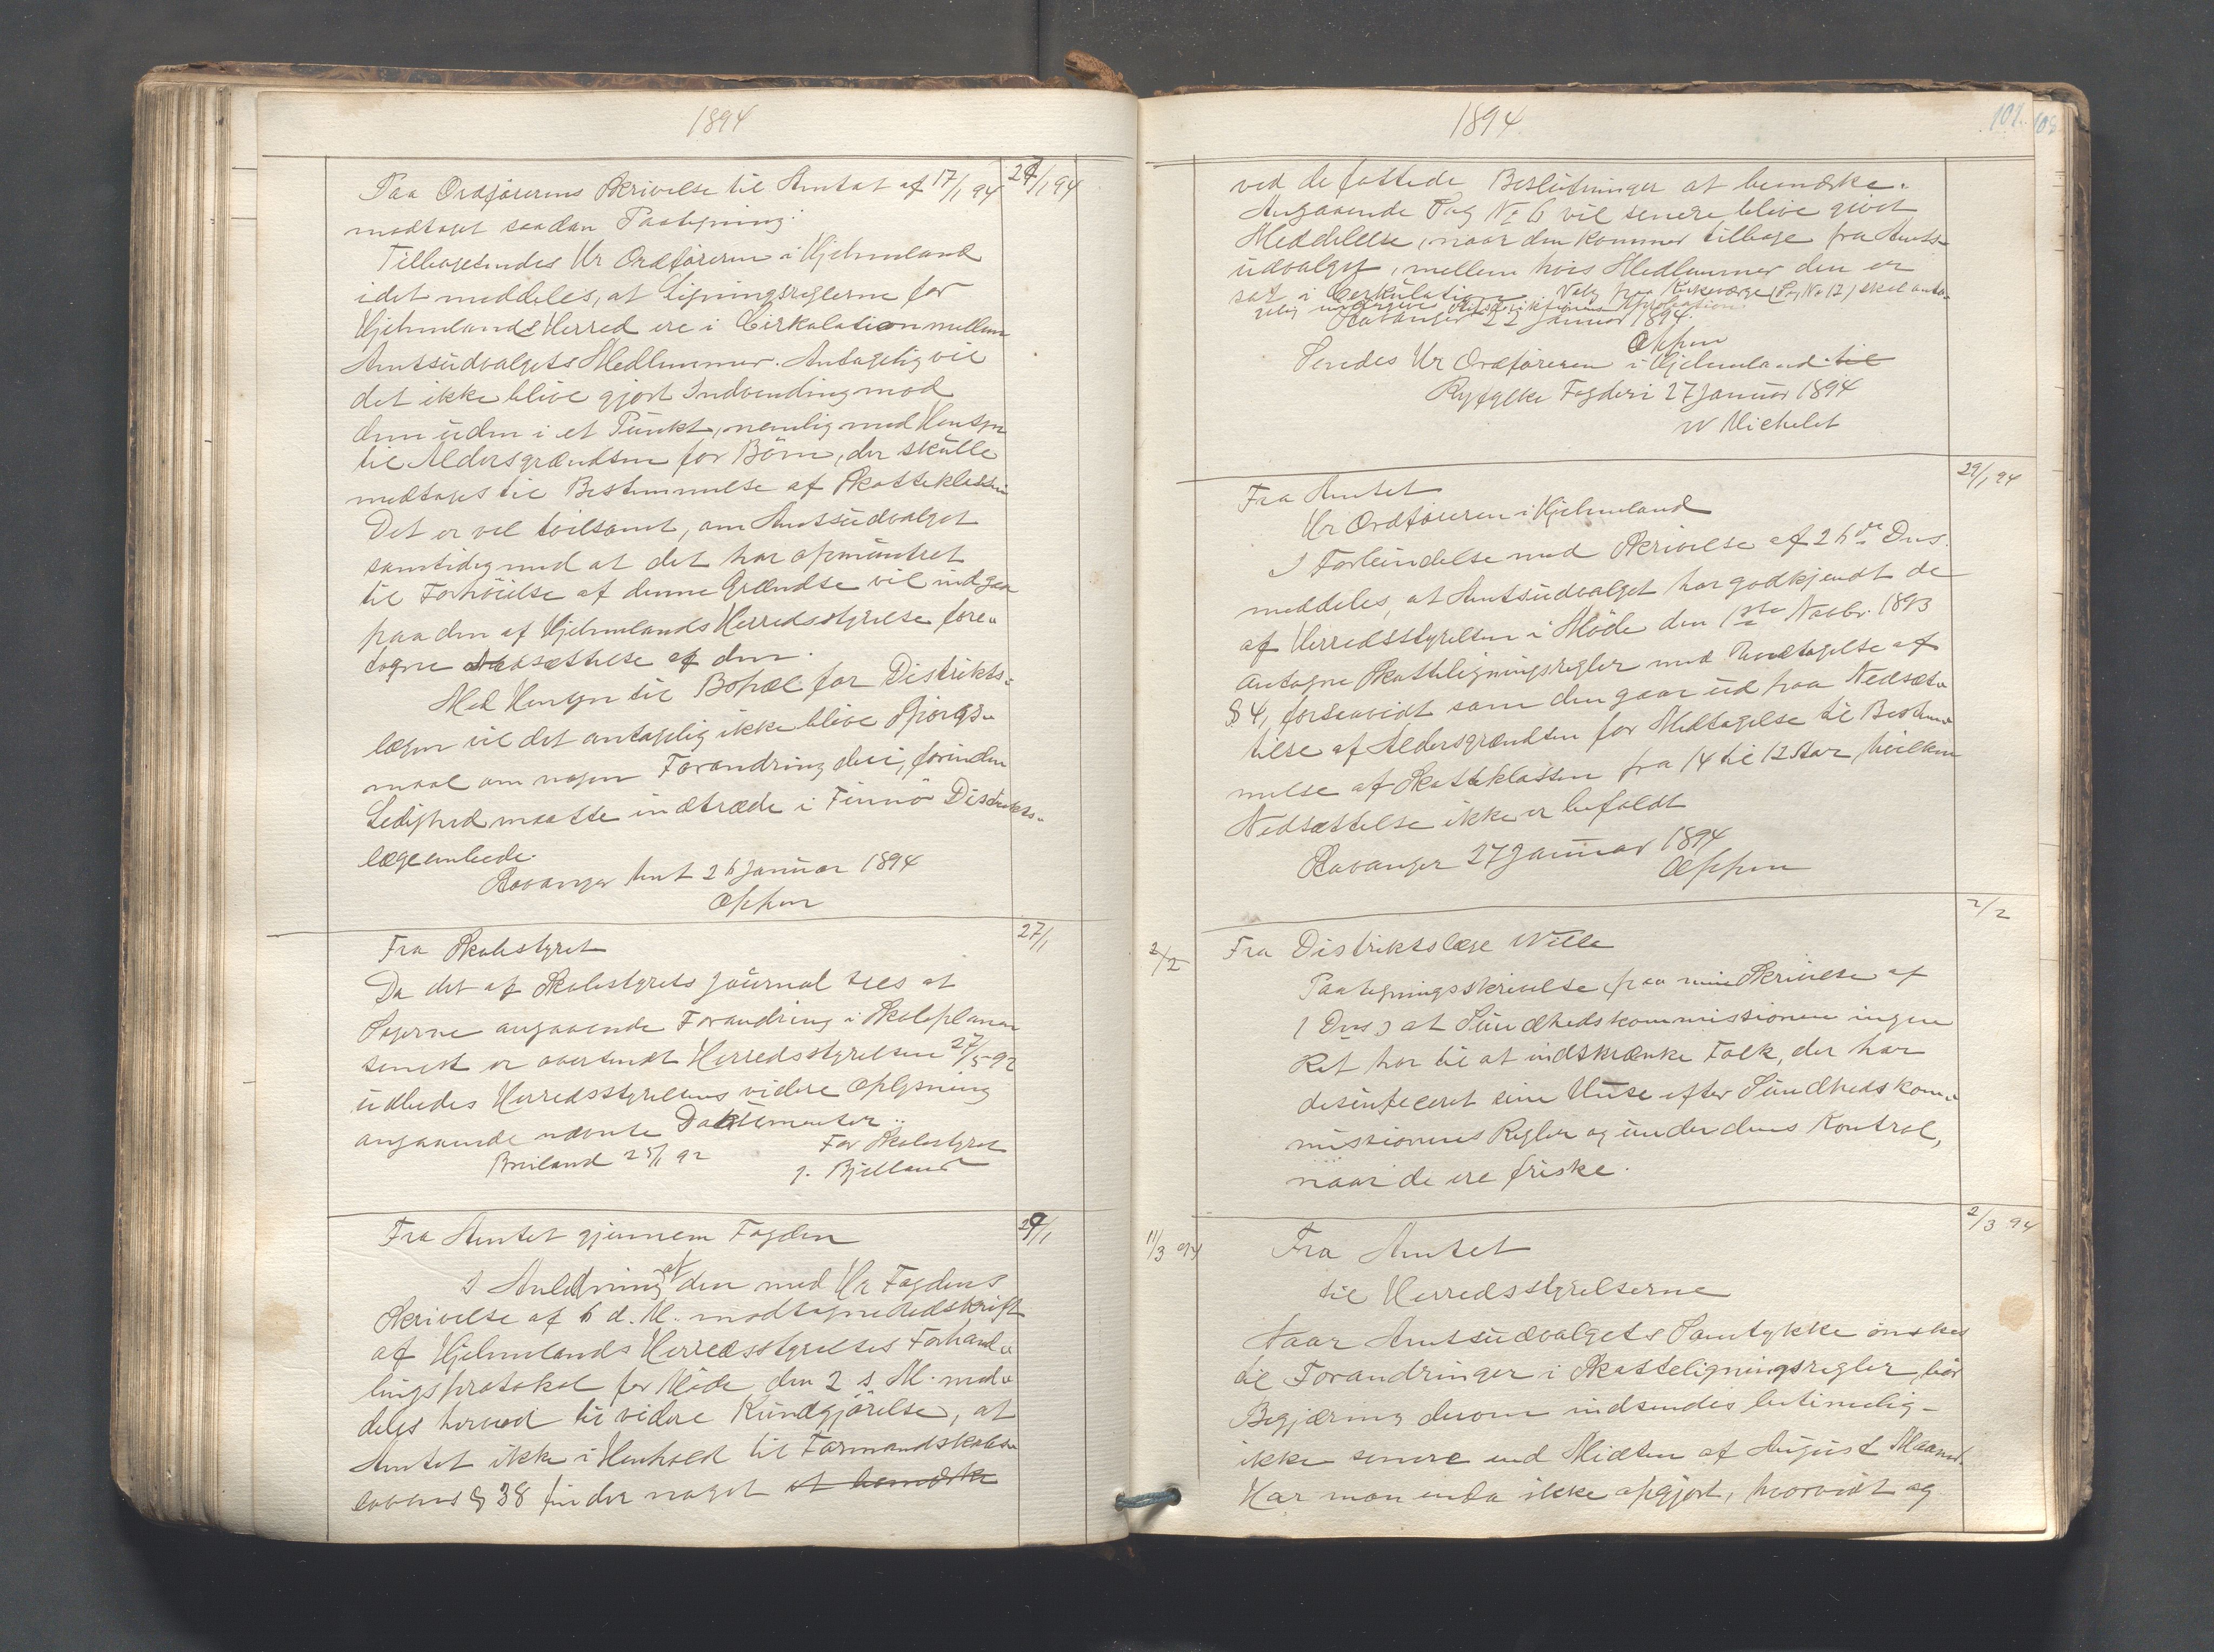 1894
Paa Ordførerens Skrivelse til Amtet af 17/1 94
29/1 94
modtaget saadan Paategning:
Tilbagesendes Hr Ordføreren i Hjelmeland
idet meddeles, at Ligningsreglerne for
Hjelmelands Herred ere i Cirkulation mellem
Amtsudvalgets Medlemmer. Antagelig vil
det ikke blive gjort Indvending mod
dem uden i et Punkt, nemlig med Hensyn
til Aldersgrændsen for Børn, der skulle
medtages til Bestemmelse af Skatteklassen
Det er vel tvilsomt, om Amtsudvalget
samtidig med at det har opmuntret
til Forhöielse af denne Grændse vil indgaa
paa den af Hjelmelands Herredsstyrelse fore-
tagne Nedsættelse af den.
Med Hensyn til Bopæl for Distrikts-
lægen vil det antagelig ikke blive Spörgs-
maal om nogen Forandring deri, forinden
Ledighed maatte indtræde i Finnö Distrikts-
lægeembede.
Stavanger Amt 26 Januar 1894
Oppen
Fra Skolestyret
27/1
Da det af Skolestyrets Journal sees at
Sagerne angaaende Forandring i Skoleplanen
senest er oversendt Herredsstyrelsen 27/5 92
udbedes Herredsstyrelsens videre Oplysning
angaaende nævnte Dokumenter.
Breiland 25/1 92
For Skolestyret
J. Bjelland
Fra Amtet gjennem Fogden
29/1
I Anledning af den med Hr Fogdens
Skrivelse af 6 d. M. modtagne Udskrift
af Hjelmelands Herredsstyrelses Forhand-
lingsprotokol for Möde den 2 s M. med-
deles herved til videre Kundgjörelse, at
Amtet ikke i Henhold til Formandskabs-
lovens § 38 finder noget at bemærke
1894
101.
ved de fattede Beslutninger at bemærke.
Angaaende Sag No 6 vil senere blive givet
Meddelelse, naar den kommer tilbage fra Amts-
udvalget, mellem hvis Medlemmer den er
sat i Cirkulation. Valg paa Kirkeværge (Sag No 12) skal anta-
gelig undergives Stiftsdirektionens Approbation
Stavanger 22 Januar 1894.
Oppen
Sendes Hr Ordföreren i Hjelmeland til
Ryfylke Fogderi 27 Januar 1894
W Michelet
Fra Amtet
29/1 94
Hr Ordföreren i Hjelmeland
I Forbindelse med Skrivelse af 26de Dns.
meddeles, at Amtsudvalget har godkjendt de
af Herredsstyrelsen i Möde den 1ste Novbr. 1893
antagne Skatteligningsregler med Undtagelse af
§ 4, forsaavidt som den gaar ud paa Nedsæt-
telse af Aldersgrændsen for Medtagelse til Bestem-
melse af Skatteklassen fra 14 til 12 Aar, hvilken
Nedsættelse ikke er bifaldt
Stavanger 27 Januar 1894
Oppen
2/2
2/2
Fra Distriktslæge Wille
Paategningsskrivelse (paa min Skrivelse af
1 Dns) at Sundhedskommissionen ingen
Ret har til at indskrænke Folk, der har
desinficeret sine Huse efter Sundhedskom-
missionens Regler og under dens Kontrol,
naar de ere friske.
11/3 94
2/3 94
Fra Amtet
til Herredsstyrelserne
Naar Amtsudvalgets Samtykke önskes
til Forandringer i Skatteligningsregler, bör
Begjæring derom indsendes betimelig -
ikke senere end Midten af August Maaned.
Har man enda ikke opgjort, hvorvidt og